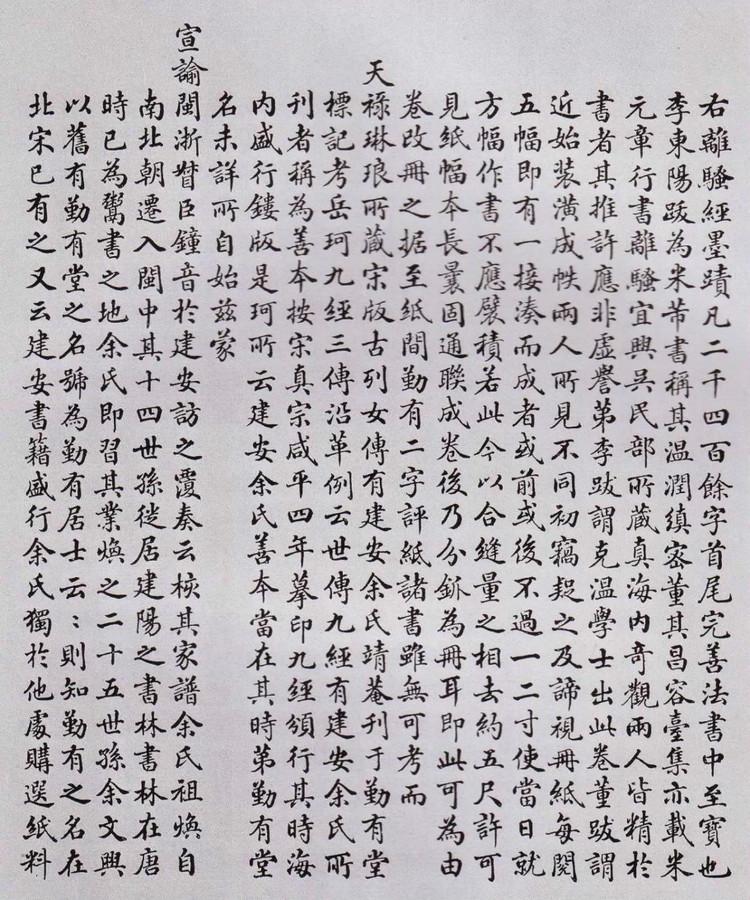 右離騷經墨蹟凡二千四百餘字首尾完善法書中至寶也
李東陽跋為米芾書稱其温潤縝密董其昌容臺集亦載米
元章行書離騷宜興吳民部所藏真海内奇觀兩人皆精於
書者其推許應非虛譽第李跋謂克温學士出此卷董跋謂
近始装潢成帙兩人所見不同初竊疑之及諦視冊紙每閱
五幅即有一接湊而成者或前或後不過一二寸使當日就
方幅作書不應襞積若此今以合縫量之相去約五尺許可
見紙幅本長曩固通聯成卷後乃分鈲為冊耳即此可為由
卷改冊之据至紙間勤有二字評紙諸書雖無可考而
天禄琳琅所藏宋版古列女傳有建安余氏靖菴刊于勤有堂
標記考岳珂九經三傳沿革例云世傳九經有建安余氏所
刊者稱為善本按宋真宗咸平四年摹印九經頒行其時海
内盛行鏤版是珂所云建安余氏善本當在其時第勤有堂
名未詳所自始兹蒙
宣諭閩浙督臣鐘音於建安訪之覆奏云檢其家譜余氏祖煥自
南北朝遷入閩中其十四世孫徙居建陽之書林書林在唐
時已為鬻書之地余氏即習其業煥之二十五世孫余文興
以舊有勤有堂之名號為勤有居士云〻則知勤有之名在
北宋已有之又云建安書籍盛行余氏獨於他處購選紙料